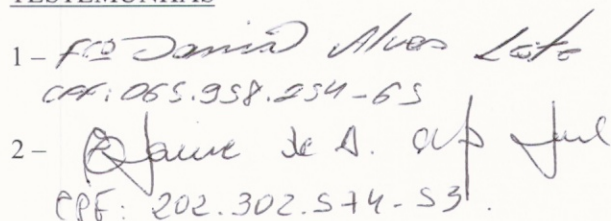 TESTEMUNHAS
1 – Fco Daniel Alves
CPF: 065.958.254-65
2 – de A.
CPF: 202.302.574-53.